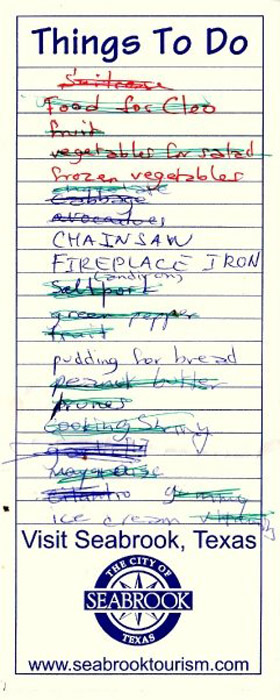 Things To Do
Suitcase
Food for Cleo
fruit
vegetables for salad
frozen vegetables
Cabbage
avocadoes
CHAINSAW
FIREPLACE IRON
(andiron)
green pepper
fruit
pudding for bread
peanut butter
prunes
Cooking
mayonaise
cilantro
ice cream
Visit Seabrook, Texas
THE CITY OF
SEABROOK
TEXAS
www.seabrooktourism.com